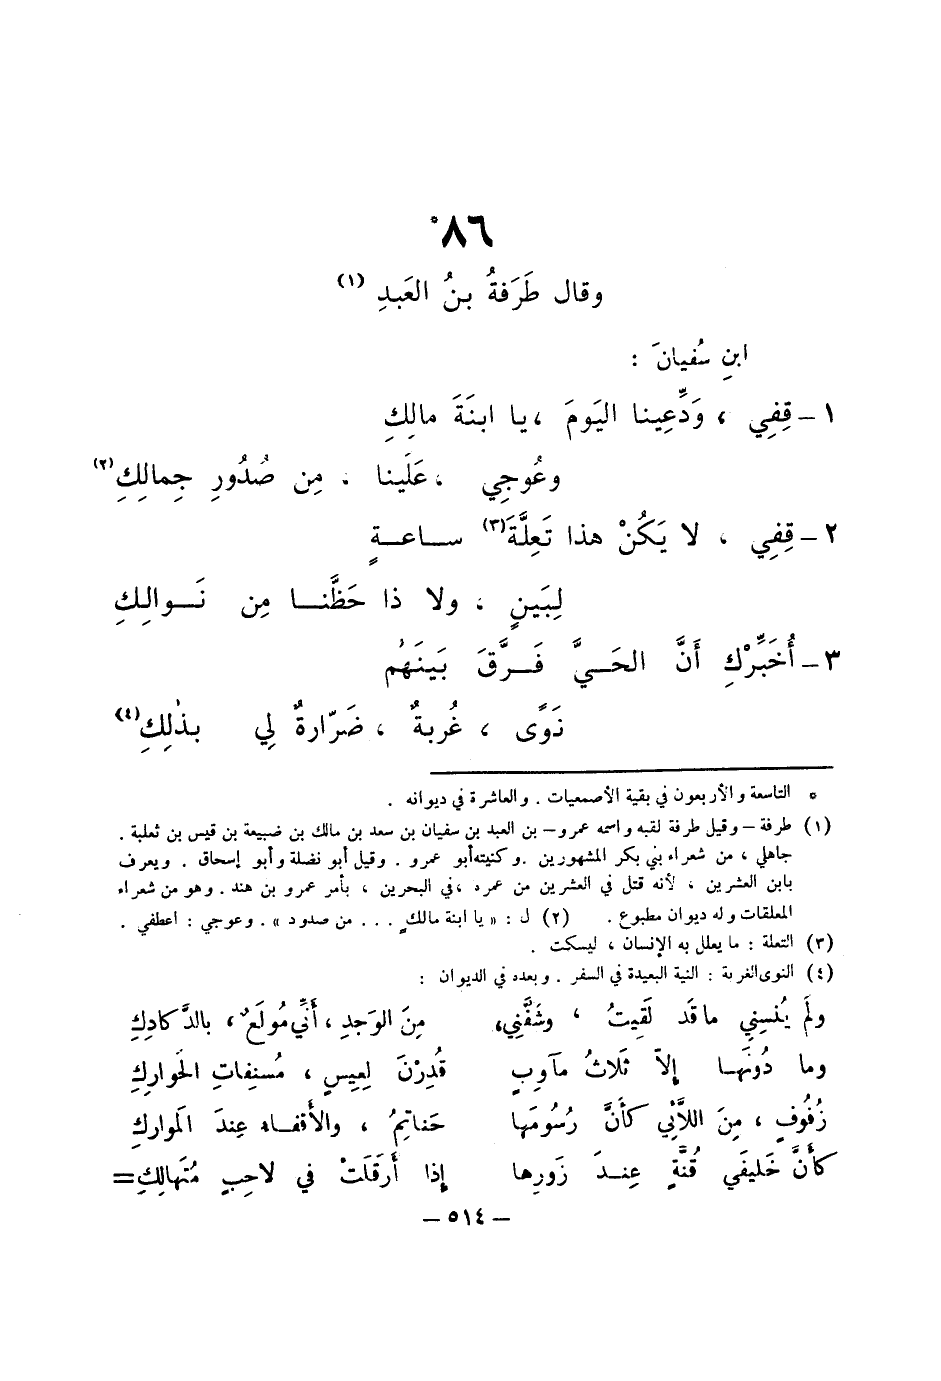 ٨٦*
وقال طَرَفةُ بنُ العَبدِ (١)
ابنِ سُفيانَ :
١ - قِفِي ، وَدِّعِينا اليَومَ ، يا ابنَةَ مالِكِ
وعُوجِي ، عَلَينا ، مِن صُدُورِ جِمالِكِ(٢)
٢ - قِفِي ، لا يَكُنْ هذا تَعِلَّةَ(٣) ساعةٍ
لِبَينٍ ، ولا ذا حَظَّنا مِن نَوالِكِ
٣ - أُخَبِّرْكِ أَنَّ الحَيَّ فَرَّقَ بَينَهُم
نَوًى ، غُربةٌ ، ضَرّارةٌ لِي بذٰلِكِ(٤)
* التاسعة والأربعون في بقية الأصمعيات . والعاشرة في ديوانه .
(١) طرفة – وقيل طرفة لقبه واسمه عمرو – بن العبد بن سفيان بن سعد بن مالك بن ضبيعة بن قيس بن ثعلبة .
جاهلي ، من شعراء بني بكر المشهورين . وكنيته أبو عمرو . وقيل أبو نضلة وأبو إسحاق . ويعرف
بابن العشرين ، لأنه قتل في العشرين من عمره ، في البحرين ، بأمر عمرو بن هند . وهو من شعراء
المعلقات وله ديوان مطبوع . (٢) ل : « يا ابنة مالكٍ . . . من صدود » . وعوجي : اعطفي .
(٣) التعلة : ما يعلل به الإنسان ، ليسكت .
(٤) النوى الغربة : النية البعيدة في السفر . وبعده في الديوان :
ولَم يُنسِنِي ما قَد لَقِيتُ ، وشَفَّنِي، مِنَ الوَجدِ ، أَنِّي مُولَعٌ ، بالدَّكادِكِ
وما دُونَها إلاّ ثَلاثُ مآوِبٍ قُدِرْنَ لِعِيسٍ ، مُسنِفاتِ الحَوارِكِ
زُفُوفٍ ، مِنَ اللّائِي كأنَّ رُسُومَها خَناتِمُ ، والأَقفاء عِندَ المَوارِكِ
كأنَّ خَلِيفَي قُنَّةٍ عِندَ زَورِها إذا أَرقَلَتْ في لاحِبٍ مُتَهالِكِ=
– ٥١٤ –